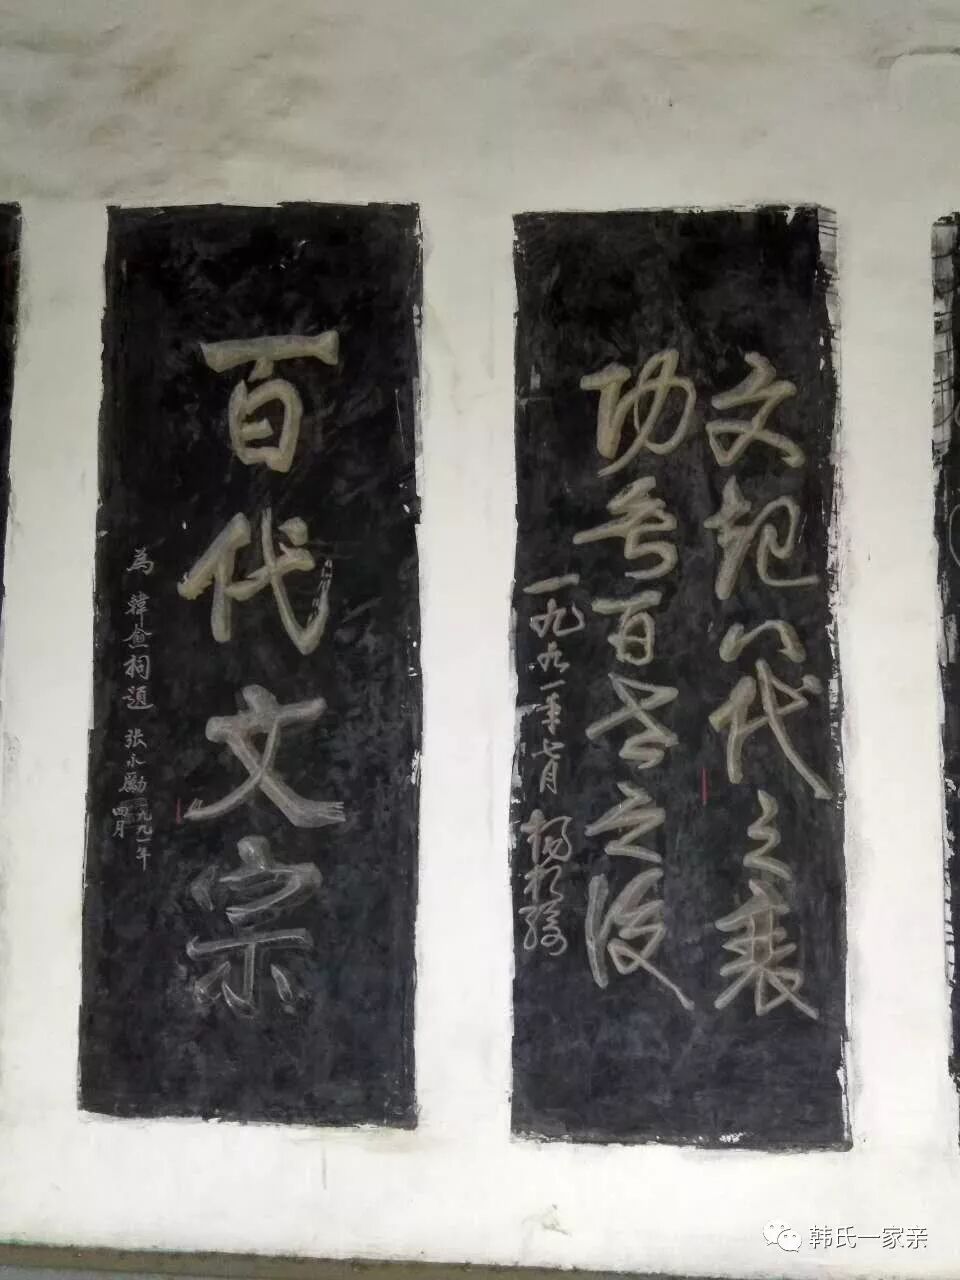 文起八代之衰
功垂百世之後
一九九一年七月 楊
百代文宗
為 韓愈祠題 張永勵 一九九一年
四月
韩氏一家亲